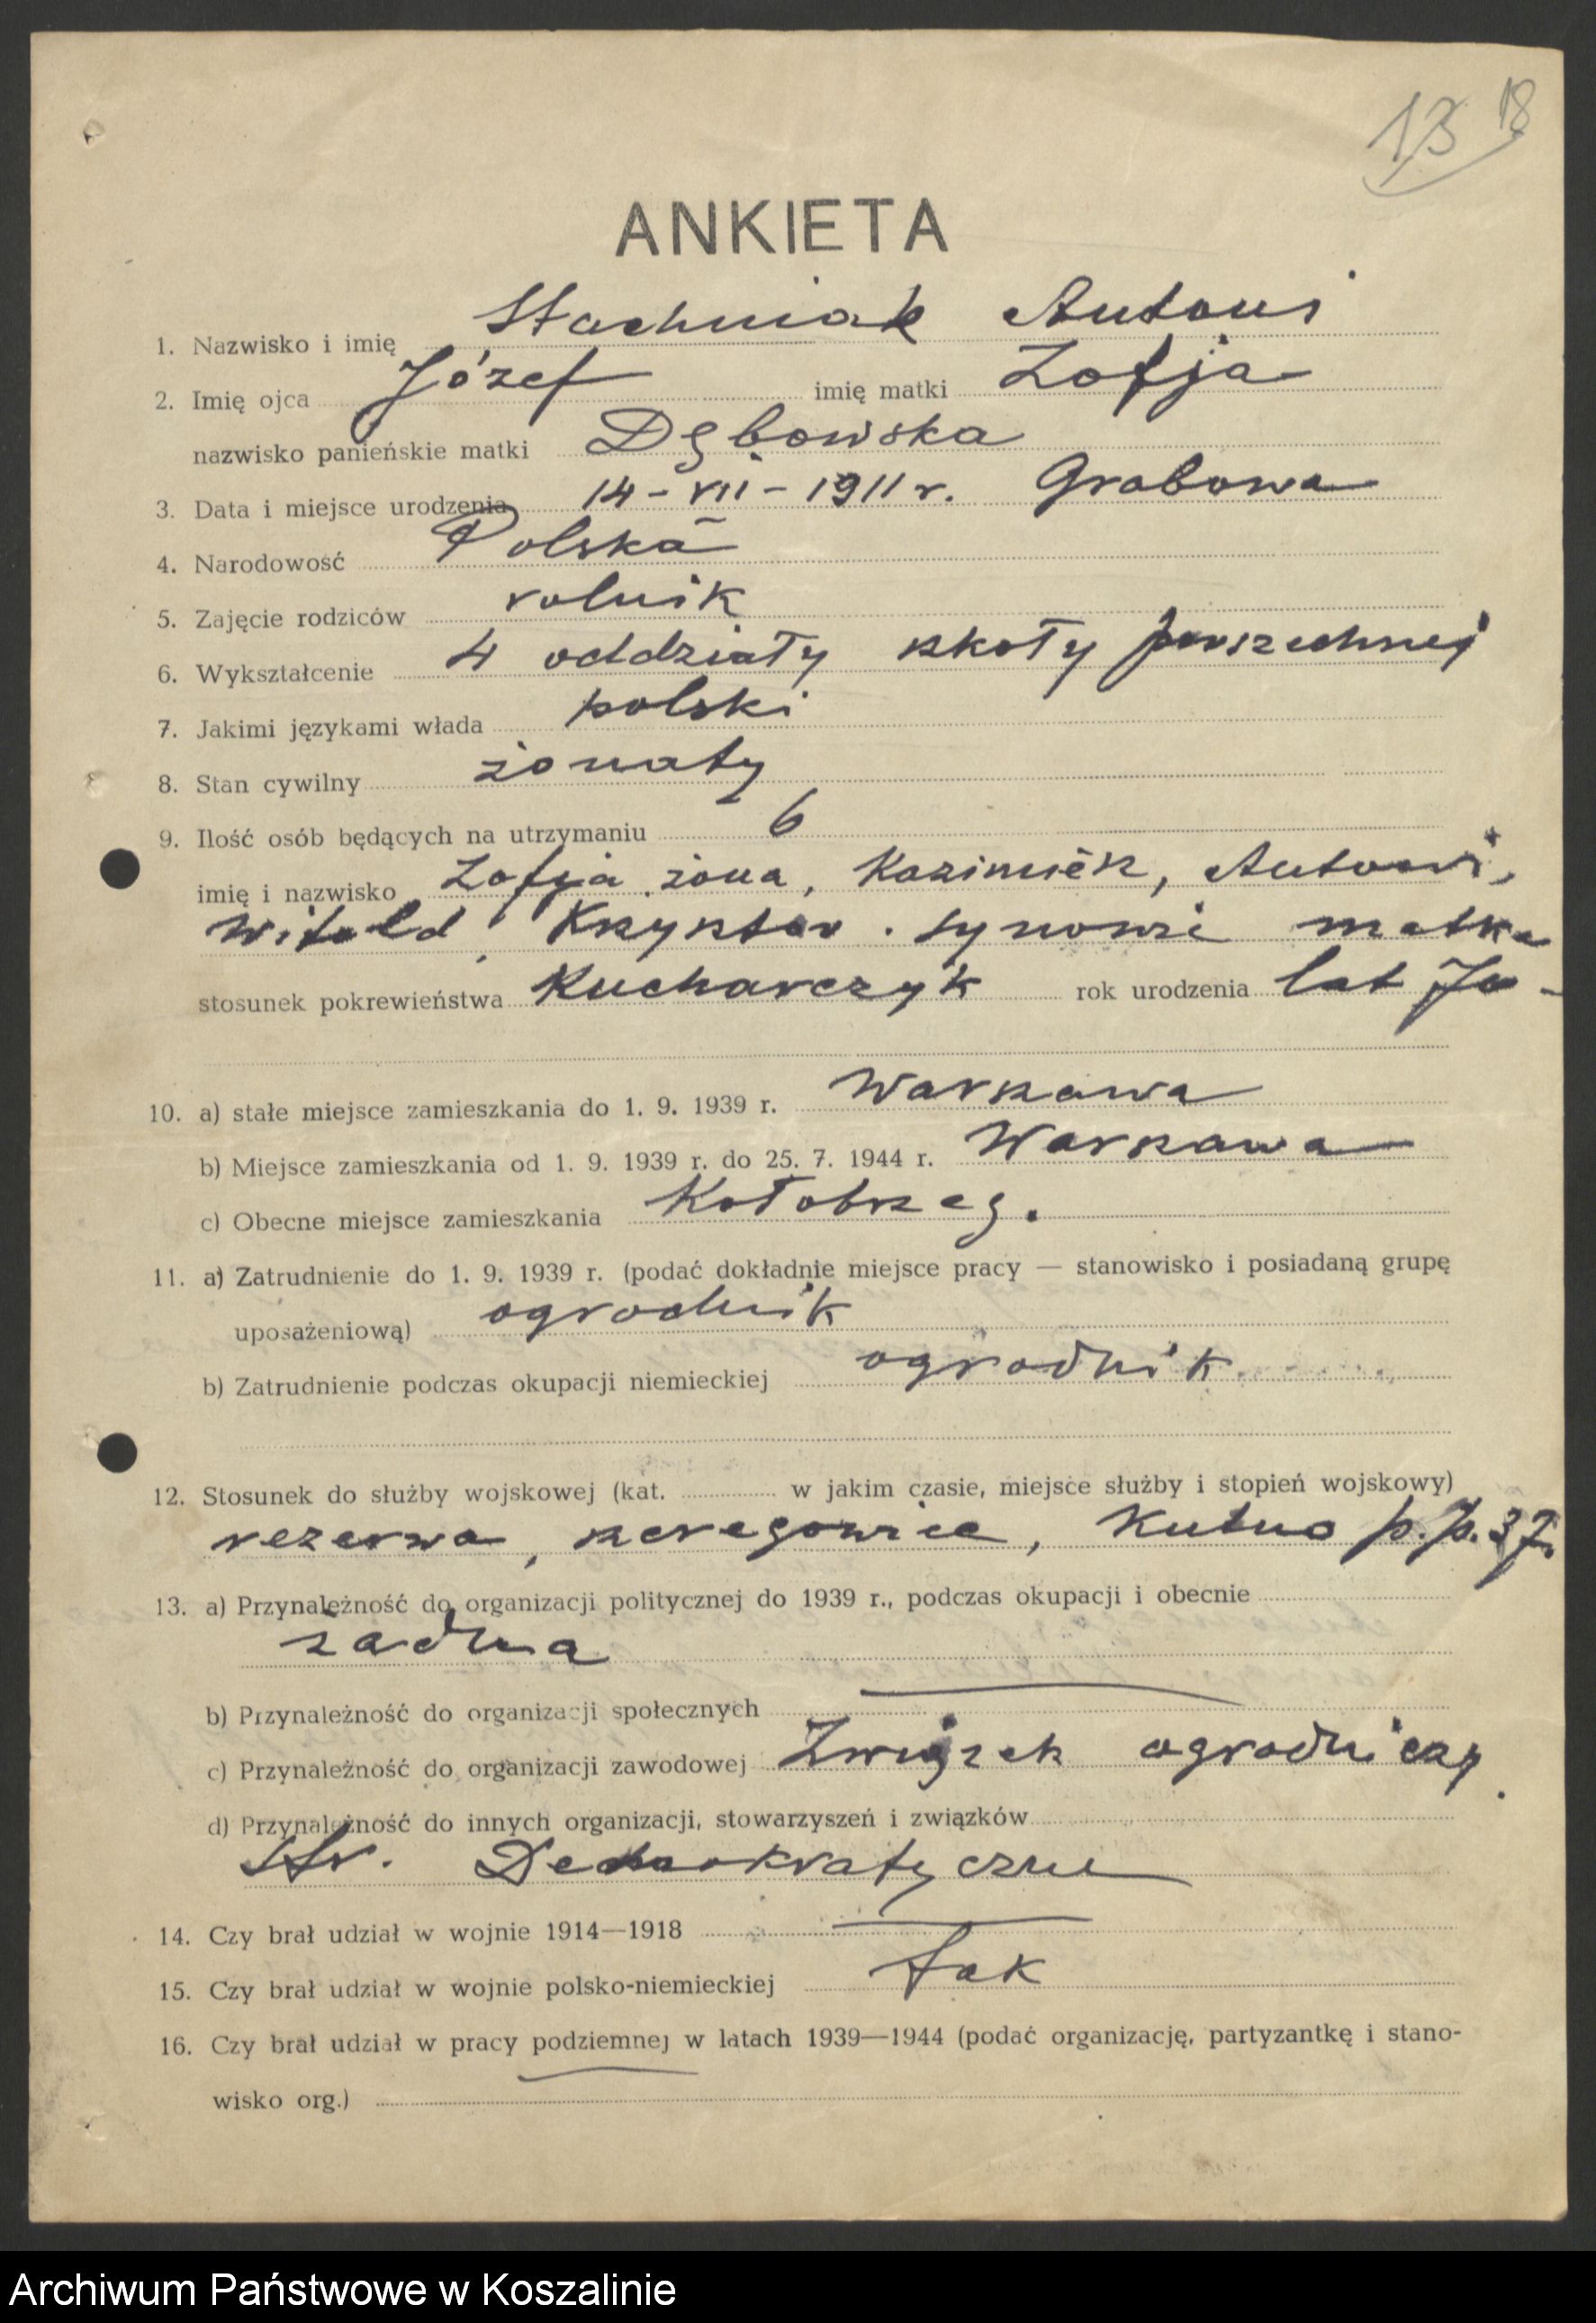 13 18
ANKIETA
1. Nazwisko i imię Stachniak Antoni
2. Imię ojca Józef imię matki Zofja
nazwisko panieńskie matki Dębowska
3. Data i miejsce urodzenia 14-VII-1911 r. Grabowa
4. Narodowość Polska
5. Zajęcie rodziców rolnik
6. Wykształcenie 4 oddziały szkoły powszechnej
7. Jakimi językami włada polski
8. Stan cywilny żonaty
9. Ilość osób będących na utrzymaniu 6
imię i nazwisko Zofja żona, Kazimież, Antoni,
Witold, Krzysztow. synowie matka
stosunek pokrewieństwa Kucharczyk rok urodzenia lat 70-
10. a) stałe miejsce zamieszkania do 1. 9. 1939 r. Warszawa
b) Miejsce zamieszkania od 1. 9. 1939 r. do 25. 7. 1944 r. Warszawa
c) Obecne miejsce zamieszkania Kołobrzeg.
11. a) Zatrudnienie do 1. 9. 1939 r. (podać dokładnie miejsce pracy — stanowisko i posiadaną grupę
uposażeniową) ogrodnik
b) Zatrudnienie podczas okupacji niemieckiej ogrodnik
12. Stosunek do służby wojskowej (kat. w jakim czasie, miejsce służby i stopień wojskowy)
rezerwa, szeregowiec, Kutno p.p. 37.
13. a) Przynależność do organizacji politycznej do 1939 r., podczas okupacji i obecnie
żadna
b) Przynależność do organizacji społecznych
c) Przynależność do organizacji zawodowej Związek ogrodniczy
d) Przynależność do innych organizacji, stowarzyszeń i związków
Str. Demokratyczne
14. Czy brał udział w wojnie 1914—1918
15. Czy brał udział w wojnie polsko-niemieckiej tak
16. Czy brał udział w pracy podziemnej w latach 1939—1944 (podać organizację, partyzantkę i stano-
wisko org.)
Archiwum Państwowe w Koszalinie